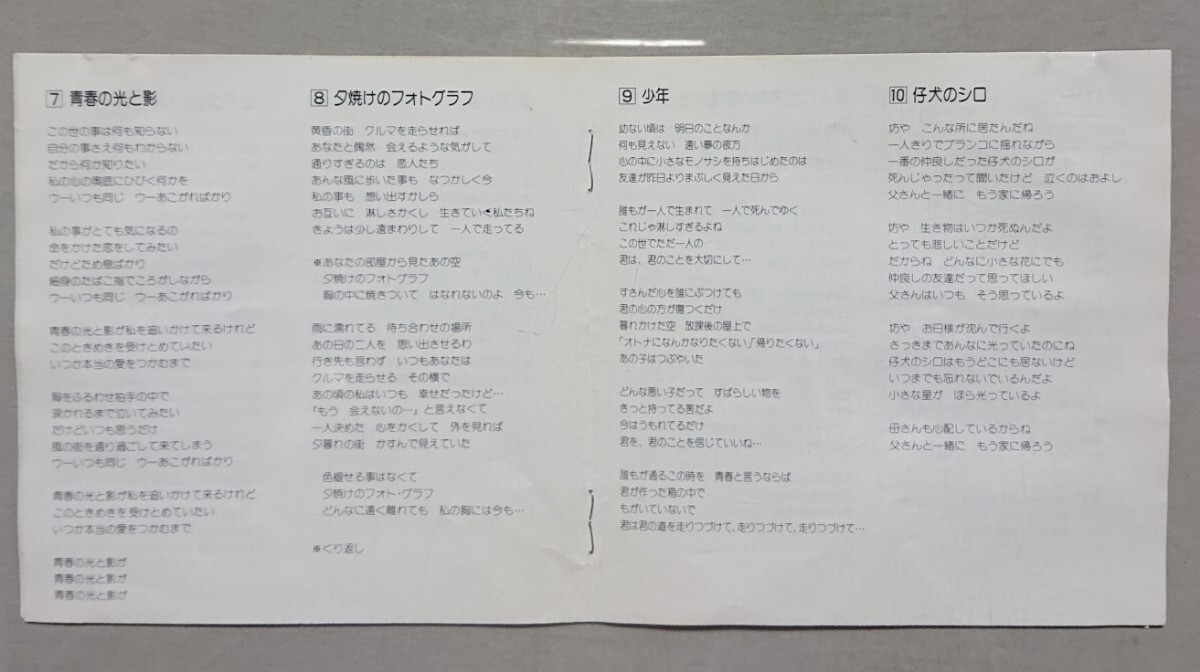 7 青春の光と影
この世の事は何も知らない
自分の事さえ何もわからない
だから何か知りたい
私の心の奥底にひびく何かを
ウーいつも同じ　ウーあこがればかり
私の事がとても気になるの
命をかけた恋をしてみたい
だけどため息ばかり
細身のたばこ指でころがしながら
ウーいつも同じ　ウーあこがればかり
青春の光と影が私を追いかけて来るけれど
このときめきを受けとめていたい
いつか本当の愛をつかむまで
胸をふるわせ拍手の中で
涙かれるまで泣いてみたい
だけどいつも思うだけ
風の街を通り過ごして来てしまう
ウーいつも同じ　ウーあこがればかり
青春の光と影が私を追いかけて来るけれど
このときめきを受けとめていたい
いつか本当の愛をつかむまで
青春の光と影が
青春の光と影が
青春の光と影が
8 夕焼けのフォトグラフ
黄昏の街　クルマを走らせれば
あなたと偶然　会えるような気がして
通りすぎるのは　恋人たち
あんな風に歩いた事も　なつかしく今
私の事も　想い出すかしら
お互いに　淋しさかくし　生きていく私たちね
きょうは少し遠まわりして　一人で走ってる
※あなたの部屋から見たあの空
夕焼けのフォトグラフ
胸の中に焼きついて　はなれないのよ　今も…
雨に濡れてる　待ち合わせの場所
あの日の二人を　思い出させるわ
行き先も言わず　いつもあなたは
クルマを走らせる　その横で
あの頃の私はいつも　幸せだったけど…
「もう　会えないの…」と言えなくて
一人決めた　心をかくして　外を見れば
夕暮れの街　かすんで見えていた
色褪せる事はなくて
夕焼けのフォト・グラフ
どんなに遠く離れても　私の胸には今も…
※くり返し
9 少年
幼ない頃は　明日のことなんか
何も見えない　遠い夢の彼方
心の中に小さなモノサシを持ちはじめたのは
友達が昨日よりまぶしく見えた日から
誰もが一人で生まれて　一人で死んでゆく
これじゃ淋しすぎるよね
この世でただ一人の
君は、君のことを大切にして…
すさんだ心を誰にぶつけても
君の心の方が傷つくだけ
暮れかけた空　放課後の屋上で
「オトナになんかなりたくない」「帰りたくない」
あの子はつぶやいた
どんな悪い子だって　すばらしい物を
きっと持ってる筈だよ
今はうもれてるだけ
君を、君のことを信じていいね…
誰もが通るこの時を　青春と言うならば
君が作った箱の中で
もがいていないで
君は君の道を走りつづけて、走りつづけて、走りつづけて…
10 仔犬のシロ
坊や　こんな所に居たんだね
一人きりでブランコに揺れながら
一番の仲良しだった仔犬のシロが
死んじゃったって聞いたけど　泣くのはおよし
父さんと一緒に　もう家に帰ろう
坊や　生き物はいつか死ぬんだよ
とっても悲しいことだけど
だからね　どんなに小さな花にでも
仲良しの友達だって思ってほしい
父さんはいつも　そう思っているよ
坊や　お日様が沈んで行くよ
さっきまであんなに光っていたのにね
仔犬のシロはもうどこにも居ないけど
いつまでも忘れないでいるんだよ
小さな星が　ほら光っているよ
母さんも心配しているからね
父さんと一緒に　もう家に帰ろう